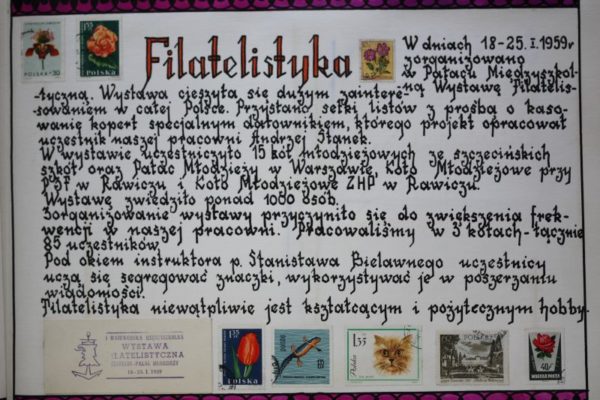 POLSKA 30
1.55
Polska
Filatelistyka
W dniach 18-25.I.1959r
zorganizowano
w Pałacu Międzyszkol-
ną Wystawę Filatelis-
-tyczną. Wystawa cieszyła się dużym zaintere-
sowaniem w całej Polsce. Przysłano setki listów z prośbą o kaso-
wanie kopert specjalnym datownikiem, którego projekt opracował
uczestnik naszej pracowni Andrzej Stanek.
W wystawie uczestniczyło 15 kół młodzieżowych ze szczecińskich
szkół oraz Pałac Młodzieży w Warszawie, Koło Młodzieżowe przy
w Rawiczu i Koło Młodzieżowe ZHP w Rawiczu.
Wystawę zwiedziło ponad 1000 osób.
Zorganizowanie wystawy przyczyniło się do zwiększenia frek-
wencji w naszej pracowni. Pracowaliśmy w 3 kołach-łącznie
85 uczestników
Pod okiem instruktora p. Stanisława Bielawnego uczestnicy
uczą się segregować znaczki, wykorzystywać je w poszerzaniu
wiadomości.
Filatelistyka niewątpliwie jest kształcącym i pożytecznym hobby.
I WOJEWÓDZKA MIĘDZYSZKOLNA
WYSTAWA
FILATELISTYCZNA
SZCZECIN-PAŁAC MŁODZIEŻY
18-25.I.1959
1.35
Polska
Polska
1.55
POLSKA
40f
MAGYAR POSTA